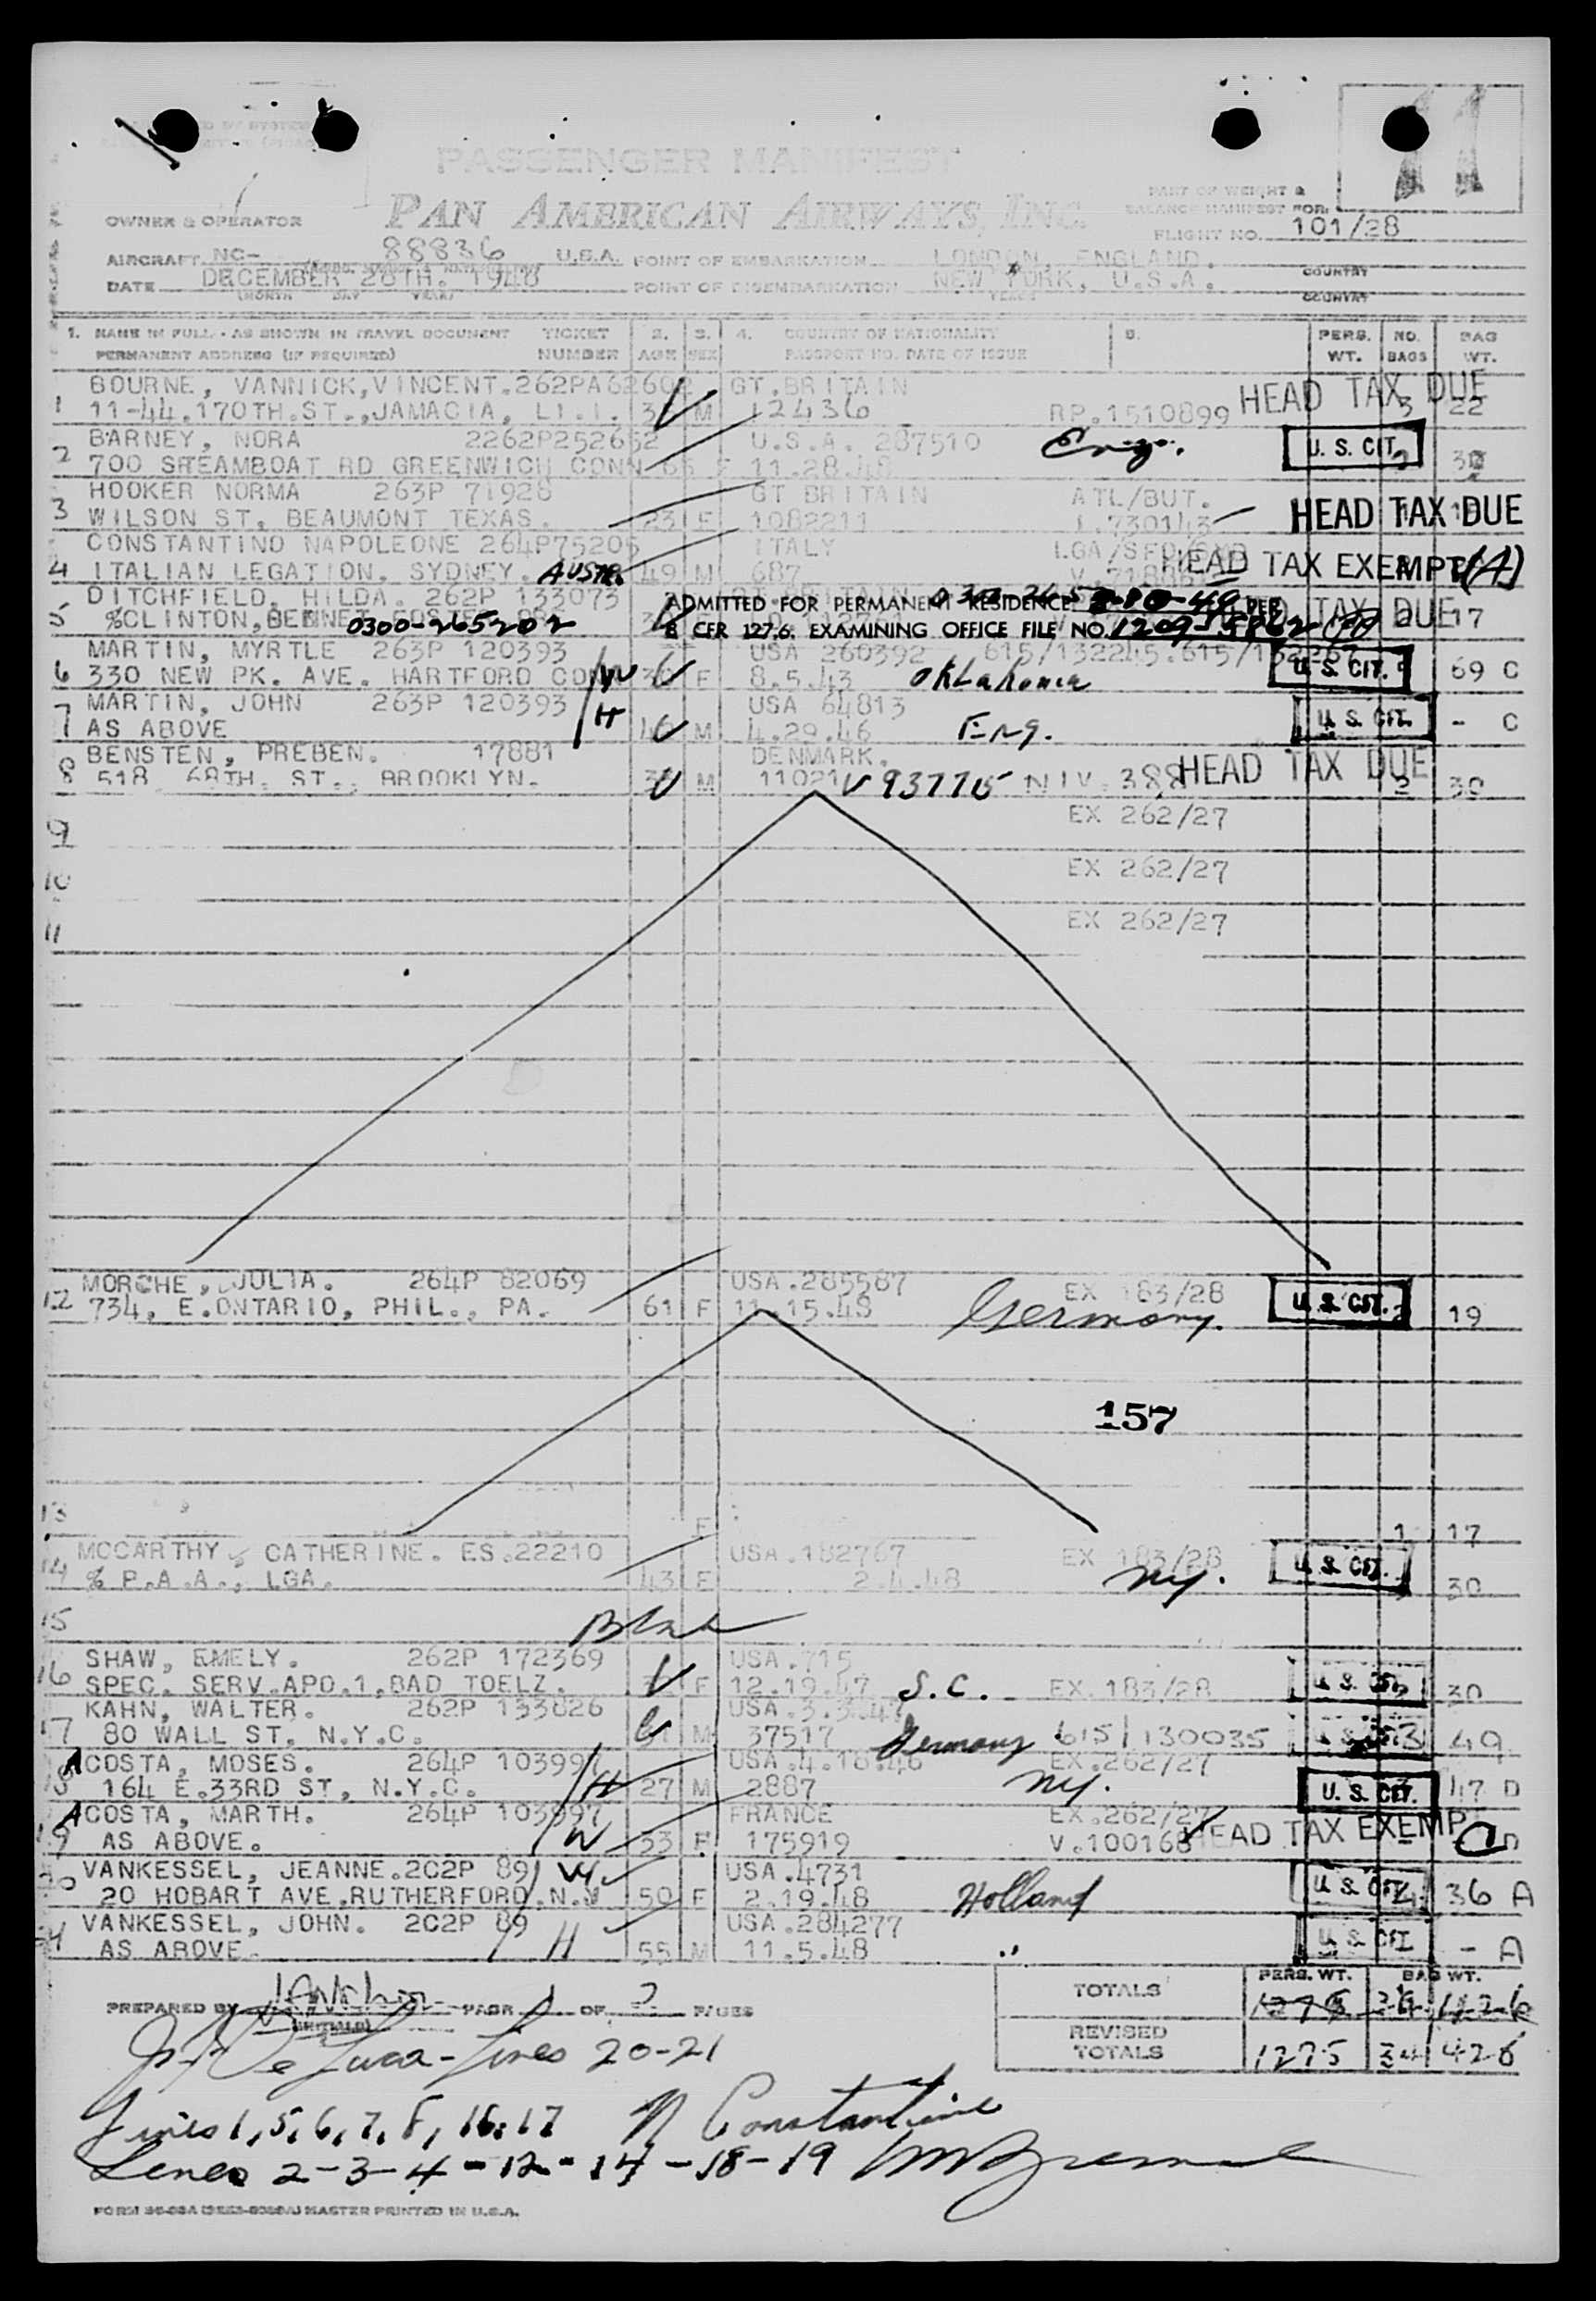 PASSENGER MANIFEST
PAN AMERICAN AIRWAYS, INC.
11
PART OF WEIGHT &
BALANCE MANIFEST FOR:
OWNER & OPERATOR
FLIGHT NO. 101/28
AIRCRAFT NC- 88836 U.S.A. POINT OF EMBARKATION LONDON, ENGLAND.
COUNTRY
DATE DECEMBER 28TH. 1948 POINT OF DISEMBARKATION NEW YORK, U.S.A.
(MONTH DAY YEAR)
COUNTRY
1. NAME IN FULL - AS SHOWN IN TRAVEL DOCUMENT TICKET 2. 3. 4. COUNTRY OF NATIONALITY 5. PERS. NO. BAG
PERMANENT ADDRESS (IF REQUIRED) NUMBER AGE SEX PASSPORT NO. DATE OF ISSUE WT. BAGS WT.
BOURNE, VANNICK, VINCENT. 262PA62602 GT.BRITAIN HEAD TAX DUE
1 11-44.170TH.ST.,JAMACIA, LI.I. M 12436 RP.1510899 3 22
BARNEY, NORA 2262P252652 U.S.A. 287510 Eng. U. S. CIT.
2 700 STEAMBOAT RD GREENWICH CONN 65 F 11.28.48
HOOKER NORMA 263P 71928 GT BRITAIN ATL/BUT.
3 WILSON ST. BEAUMONT TEXAS. 23 F 1082211 I.730143 HEAD TAX DUE
CONSTANTINO NAPOLEONE 264P75205 ITALY LGA/SFO/SYD
4 ITALIAN LEGATION. SYDNEY. AUSTR. 49 M 687 HEAD TAX EXEMPT (A)
DITCHFIELD, HILDA. 262P 133073 ADMITTED FOR PERMANENT RESIDENCE PER TAX DUE
5 %CLINTON, 0300-265202 8 CFR 127.6. EXAMINING OFFICE FILE NO. 1209-5862 17
MARTIN, MYRTLE 263P 120393 USA 260392 615/132245.615/
6 330 NEW PK. AVE. HARTFORD CONN W F 8.5.43 Oklahoma U. S. CIT. 69 C
MARTIN, JOHN 263P 120393 USA 64813
7 AS ABOVE H M 4.29.46 Eng. U. S. CIT. - C
BENSTEN, PREBEN. 17881 DENMARK.
8 518 68TH. ST., BROOKLYN. M 11021 V 937715 NIV. 388 HEAD TAX DUE 2 30
EX 262/27
9
EX 262/27
10
EX 262/27
11
MORCHE, JULIA. 264P 82069 USA.285587 EX 183/28
12 734, E.ONTARIO, PHIL., PA. 61 F 11.15.48 Germany. U. S. CIT. 19
157
13 F 1 17
MCCARTHY, CATHERINE. ES.22210 USA.182767 EX 183/28
14 % P.A.A., LGA. 43 F 2.4.48 NY. U. S. CIT. 30
15 Blank
SHAW, EMELY. 262P 172369 USA.715
16 SPEC. SERV.APO.1,BAD TOELZ. F 12.19.47 S.C. EX.183/28 U. S. CIT. 30
KAHN, WALTER. 262P 133826 USA.3.3.47
17 80 WALL ST. N.Y.C. M 37517 Germany 615/130035 U. S. CIT. 3 49
ACOSTA, MOSES. 264P 103997 USA.4.16.46 EX.262/27
18 164 E.33RD ST, N.Y.C. H 27 M 2887 NY. U. S. CIT. 47 D
ACOSTA, MARTH. 264P 103997 FRANCE EX.262/27
19 AS ABOVE. W 53 F 175919 V.100168 HEAD TAX EXEMPT
VANKESSEL, JEANNE. 2C2P 89 W USA.4731
20 20 HOBART AVE.RUTHERFORD.N.J 50 F 2.19.48 Holland U. S. CIT. 4 36 A
VANKESSEL, JOHN. 2C2P 89 USA.284277
21 AS ABOVE. H 55 M 11.5.48 " U. S. CIT. - A
PERS. WT. BAG WT.
TOTALS
PREPARED BY PAGE 1 OF 2 PAGES
(INITIALS)
REVISED
TOTALS 1275 34 428
De Luca - Lines 20-21
Lines 1, 5, 6, 7, 8, 16, 17 N Constantine
Lines 2-3-4-12-14-18-19
MASTER PRINTED IN U.S.A.